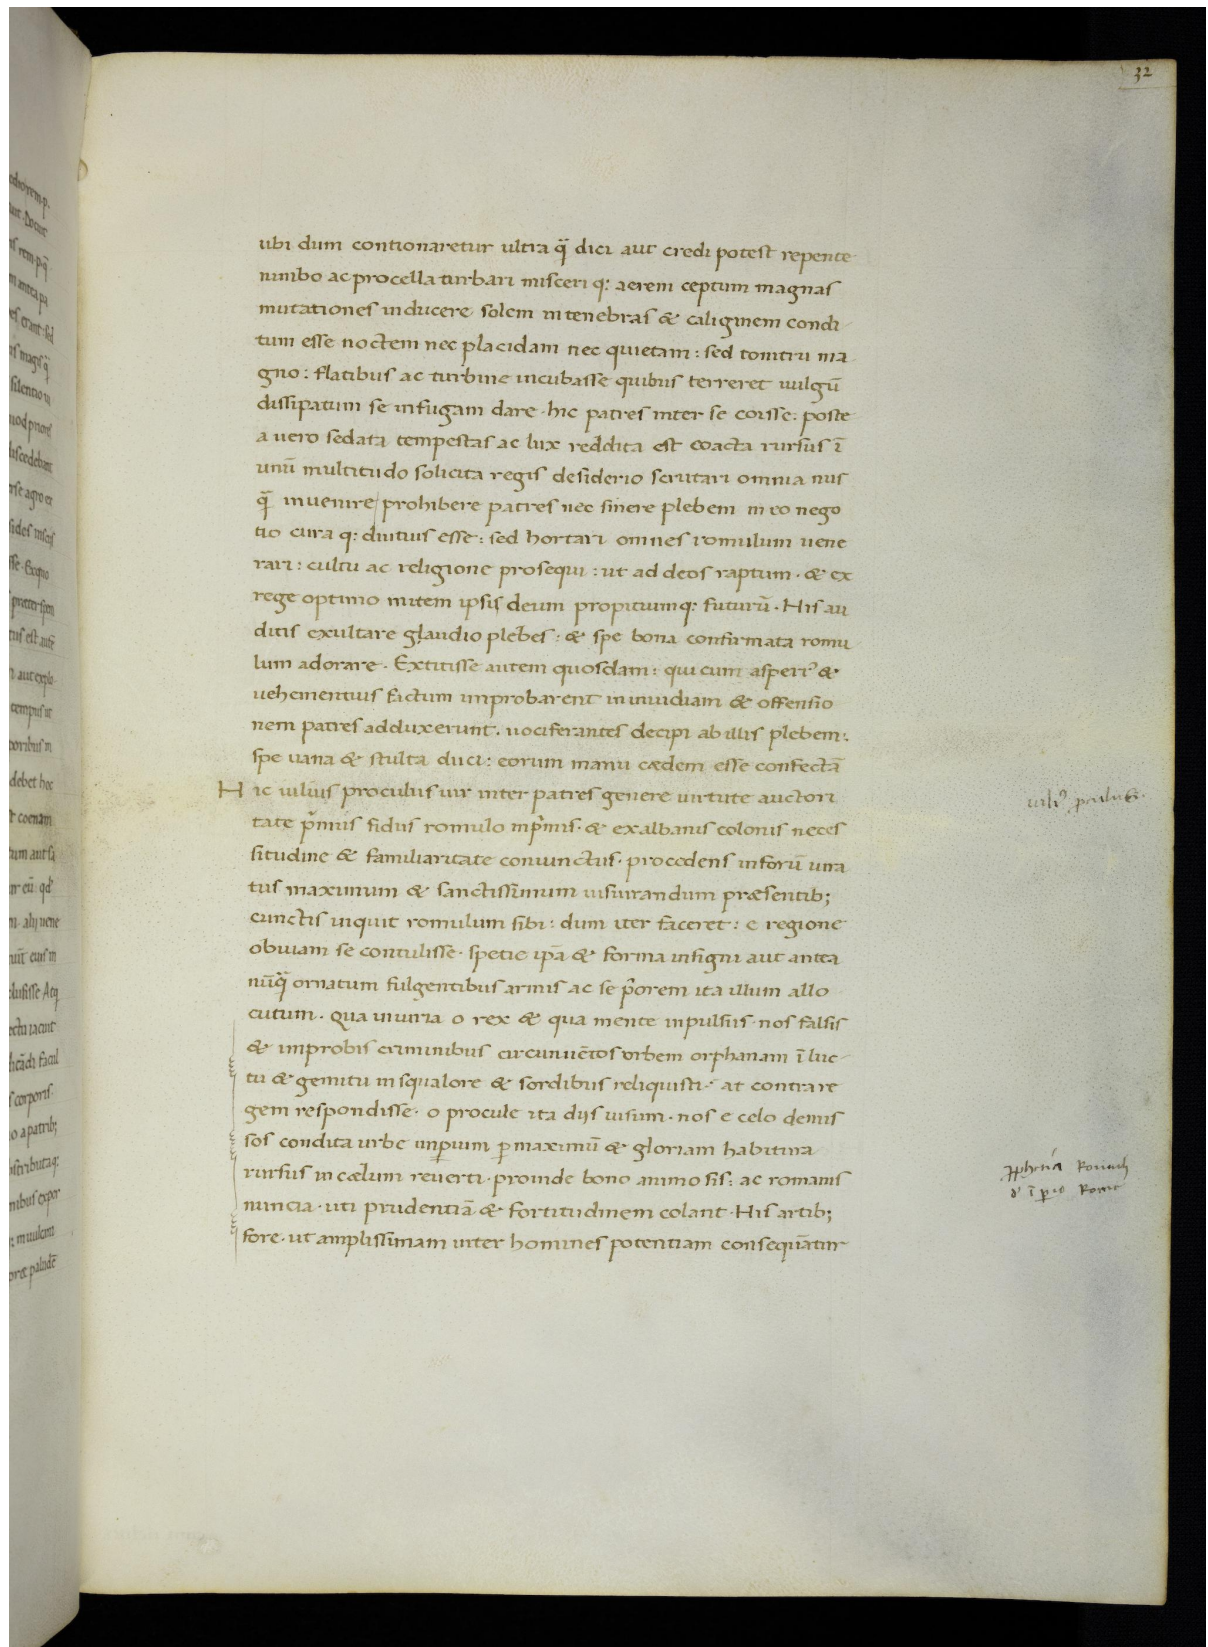 32
ubi dum contionaretur ultra q̃ dici aut credi potest repente
nimbo ac procella turbari misceri q: aerem ceptum magnas
mutationes inducere solem in tenebras & caliginem condi
tum esse noctem nec placidam nec quietam: sed tonitru ma
gno: flatibus ac turbine incubasse quibus terreret uulgũ
dissipatum se in fugam dare · hic patres inter se coisse: poste
a uero sedata tempestas ac lux reddita est coacta rursus ĩ
unũ multitudo solicita regis desiderio scrutari omnia nus
q̃ inuenire prohibere patres nec sinere plebem in eo nego
tio cura q: diutius esse: sed hortari omnes romulum uene
rari: cultu ac religione prosequi: ut ad deos raptum · & ex
rege optimo mitem ipsis deum propitiumq: futurũ · His au
ditis exultare glaudio plebes: & spe bona confirmata romu
lum adorare · Extitisse autem quosdam: qui cum asperi⁹ &
uehementius fictum improbarent in inuidiam & offensio
nem patres adduxerunt · uociferantes decipi ab illis plebem:
spe uana & stulta duci: eorum manu cædem esse confectã
Hic iulius proculus uir inter patres genere uirtute auctori
tate p̃mus fidus romulo inp̃mis · & ex albanis colonis neces
situdine & familiaritate coniunctus · procedens in forũ iura
tus maximum & sanctissimum iusiurandum præsentib;
cunctis inquit romulum sibi: dum iter faceret: e regione
obuiam se contulisse · spetie ip̃a & forma insigni aut antea
nũq̃ ornatum fulgentibus armis ac se p̃orem ita illum allo
cutum · qua iniuria o rex & qua mente inpulsus · nos falsis
& improbis criminibus circunuẽtos urbem orphanam ĩ luc
tu & gemitu in squalore & sordibus reliquisti · at contra re
gem respondisse · o procule ita dijs uisum · nos e celo demis
sos condita urbe imꝑium ꝑ maximũ & gloriam habitura
rursus in cælum reuerti · proinde bono animo sis: ac romanis
nuncia · uti prudentiã & fortitudinem colant · His artib;
fore · ut amplissimam inter homines potentiam consequãtur
iuli⁹ proculus